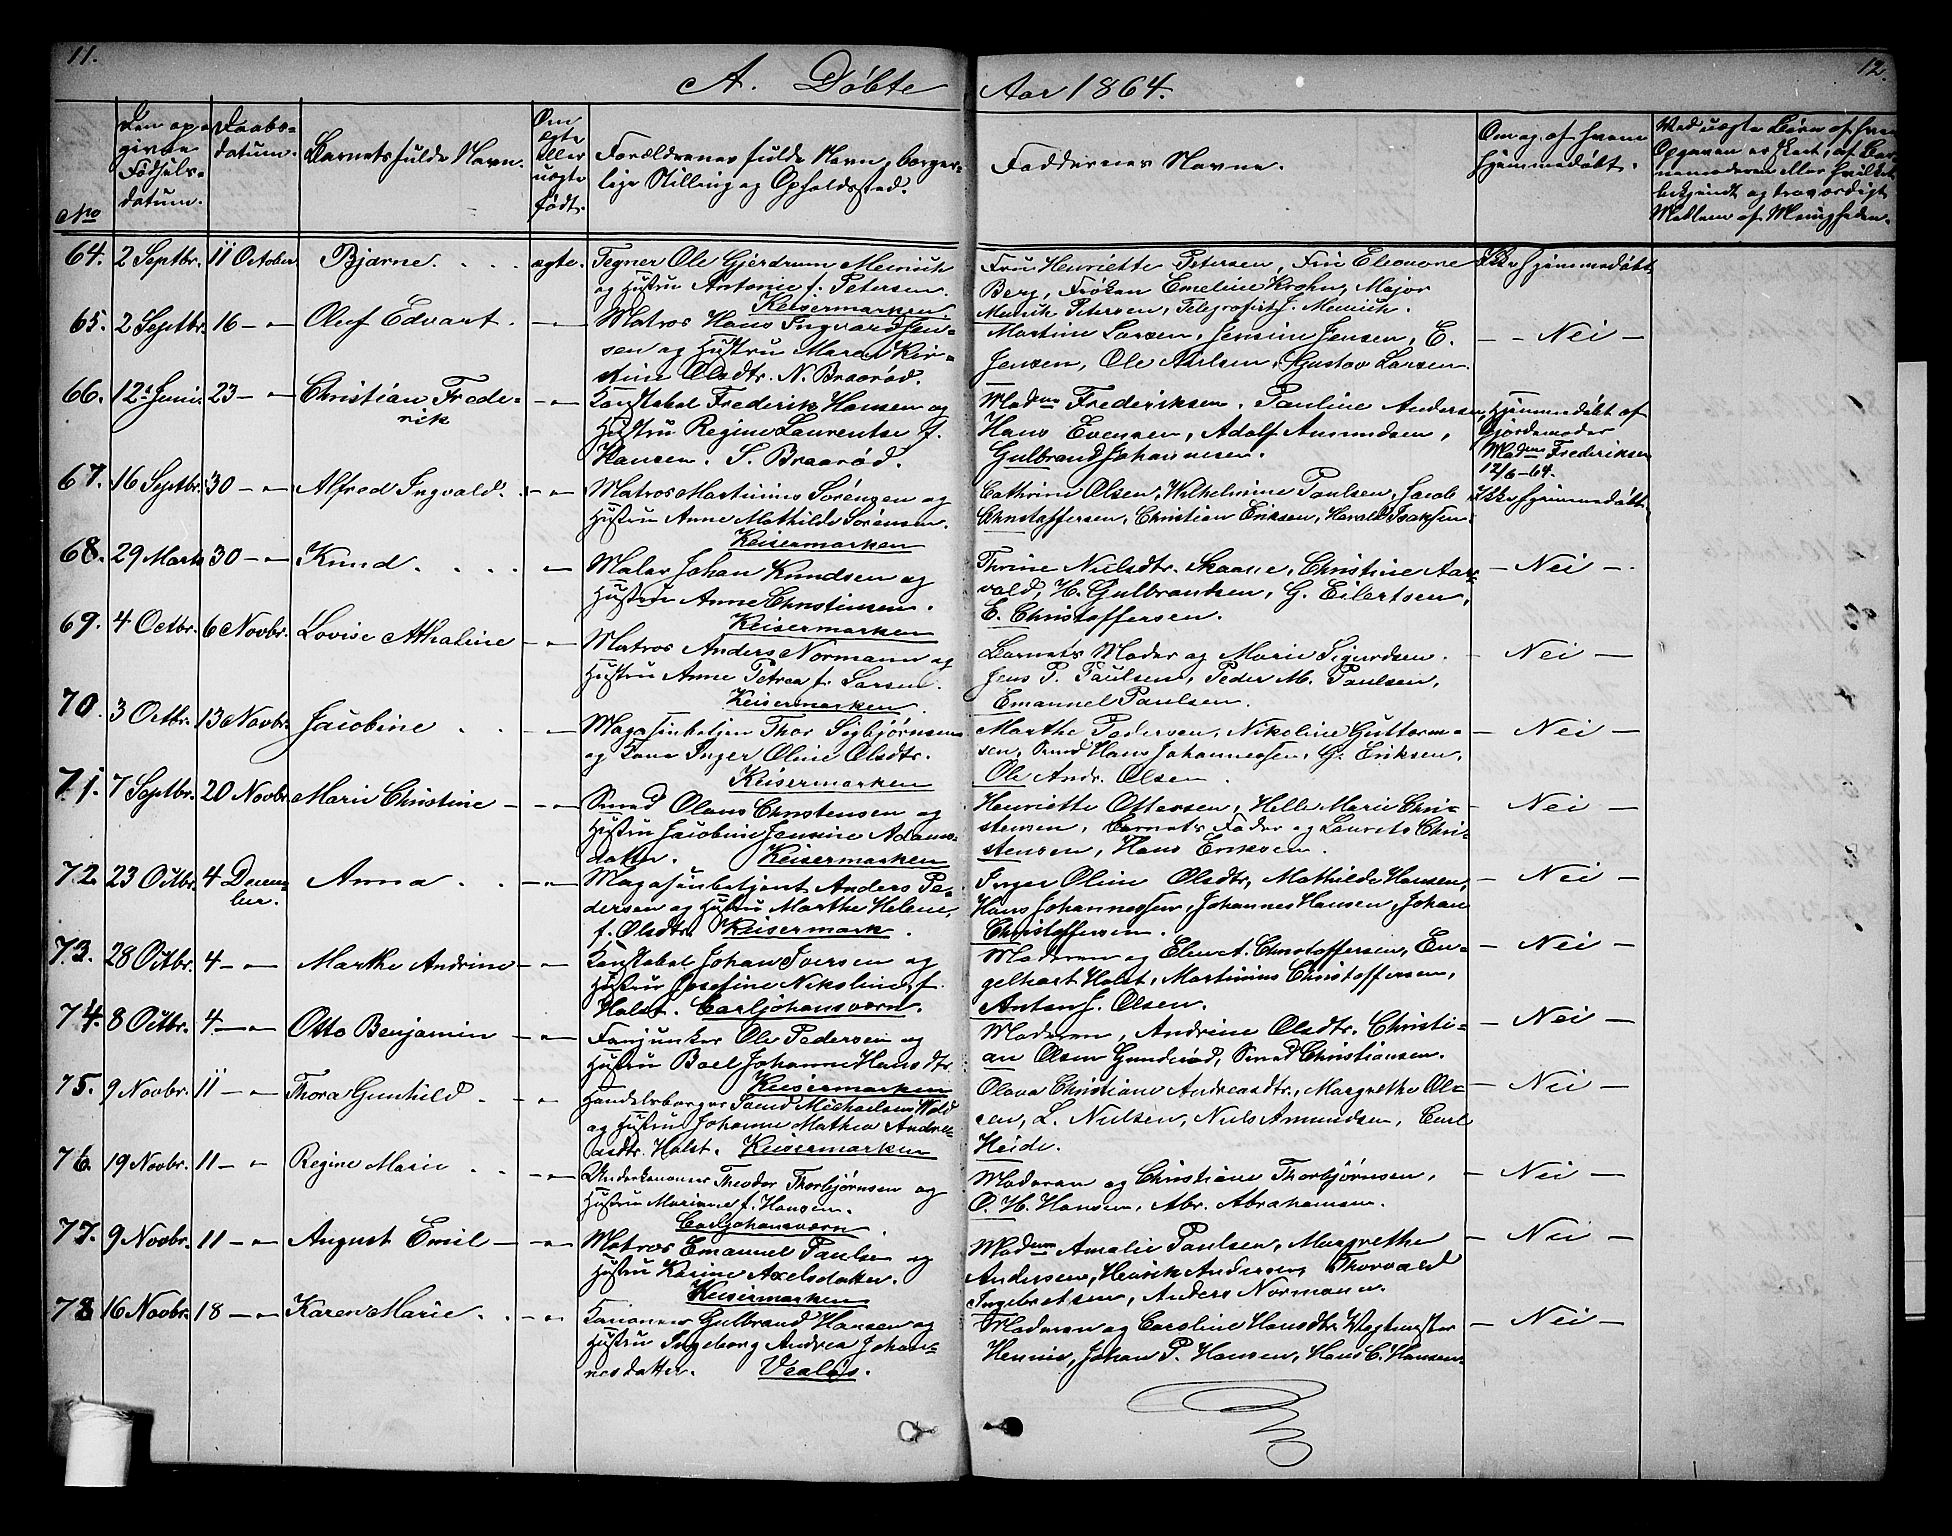 11.
12.
A. Døbte
Aar 1864.
No
Den op-
givne
Fødsels-
datum.
Daabs-
datum.
Barnets fulde Navn.
Om
ægte
eller
uægte
født.
Forældrenes fulde Navn, borger-
lige Stilling og Opholdssted.
Faddernes Navne.
Om og af hvem
hjemmedøbt.
Ved uægte Børn af hvem
Opgaven er skeet, af Bar-
nemoderen eller hvilket
bekjendt og troværdigt
Medlem af Menigheden.
64. 2 Septbr. 11 October Bjarne. ægte. Tegner Ole Gjerdrum
og Hustru Antonie f. Petersen.
Keisermarken
Fru Henriette Petersen, Fru Eleonore
Berg, Frøken Emeline Krohn, Major
Petersen, Telegrafist J.
Ikke hjemmedøbt
65. 2 Septbr. 16 - " Oluf Edvart. - " - Matros Hans Ingvard Jen-
sen og Hustru Maren Kir-
stine Olsdtr. N. Braarød.
Martine Larsen, Jensine Jensen, E.
Jensen, Ole Karlsen, Gustav Larsen.
- - Nei -
66. 12te Juni. 23 - " Christian Frede-
rik - " - Konstabel Frederik Hansen og
Hustru Regine Laurentse f.
Hansen. S. Braarød.
Madme Frederiksen, Pauline Andersen,
Hans Evensen, Adolf Amundsen,
Gulbrand Johannesen.
Hjemmedøbt af
Gjordemoder
Madme Frederiksen
12/6-64.
67. 16 Septbr. 30 - " Alfred Ingvald. - " - Matros Martinius Sörensen og
Hustru Anne Mathilde Sørensen.
Keisermarken
Cathrine Olsen, Wilhelmine Paulsen, Jacob
Christoffersen, Christian Eriksen, Harald Isaksen.
Ikke hjemmedøbt.
68. 29 Marts 30 - " Knud. - " - Maler Johan Knudsen og
Hustru Anne Christensen.
Keisermarken
Thrine Nielsdtr. Skaane, Christine Aar-
vold, H. Gulbrandsen, G. Eilertsen,
E. Christoffersen.
- Nei -
69. 4 Octbr. 6 Novbr. Lovise Athaline - " - Matros Anders Normann og
Hustru Anne Petrea f. Larsen.
Keisermarken.
Barnets Moder og Marie Sigurdsen.
Jens P. Paulsen, Peder M. Paulsen,
Emanuel Paulsen.
- Nei -
70. 3 Octbr. 13 Novbr. Jacobine - " - Thor Sigbjørnsen
og Kone Inger Oline Olsdtr.
Keisermarken
Marthe Pedersen, Nikoline Guttorm-
sen, Smed Hans Johannessen, G. Eriksen,
Ole Andr. Olsen.
- Nei -
71. 7 Septbr. 20 Novbr. Marie Christine - " - Smed Olaus Christensen og
Hustru Jacobine Jensine Adams-
datter. Keisermarken
Henriette Ottersen, Helle Marie Chri-
stensen, Barnets Fader og Laurits Chri-
stensen, Hans Eriksen.
- Nei -
72. 23 Octbr. 4 Decem-
ber. Anna - " - Magasinbetjent Anders Pe-
dersen og Hustru Marthe Helene
f. Olsdtr. Keisermark.
Inger Oline Olsdtr, Mathilde Hansen,
Hans Johannessen, Johannes Hansen, Johan
Christoffersen.
- Nei -
73. 28 Octbr. 4 - " Marthe Andrine - " - Konstabel Johan Iversen og
Hustru Josefine Nikoline f.
Holst. Carljohansværn.
Moderen og Christoffersen, En-
gelhart Holst, Martinius Christoffersen,
Anton J. Olsen.
- Nei -
74. 8 Octbr. 4 - " Otto Benjamin - " - Fanjunker Ole Pedersen og
Hustru Boel Johanne Hansdtr.
Keisermarken
Moderen, Andrine Olsdtr. Christi-
an Olsen Gunderød, Smed Christiansen.
- Nei -
75. 9 Novbr. 11 - " Thora Gunhild - " - Handelsborger Svend Michaelsen Wold
og Hustru Johanne Mathea Andre-
asdtr. Holst. Keisermarken
Olava Christiane Andreasdtr., Margrethe Ol-
sen, L. Nielsen, Niels Amundsen, Carl
Heide.
- Nei -
76. 19 Novbr. 11 - " Regine Marie - " - Underkanoner Theodor Thorbjørnsen og
Hustru Mariane f. Hansen.
Carljohansværn
Moderen og Christiane Thorbjørnsen,
O. H. Hansen, Abr. Abrahamsen.
- Nei -
77. 9 Novbr. 11 - " August Emil - " - Matros Emanuel Paulsen og
Hustru Karine Axelsdatter.
Keisermarken
Madme Amalie Paulsen, Margrethe
Andersen, Henrik Andersen, Thorvald
Ingebretsen, Anders Normann.
- Nei -
78 16 Novbr. 18 - " Karen Marie. - " - Kanoner Gulbrand Hansen og
Hustru Ingeborg Andrea Johan-
nesdatter. Vealøs.
Moderen og Caroline Hansdtr. Vagtmester
Hennie, Johan P. Hansen, Hans C. Hansen.
- Nei -